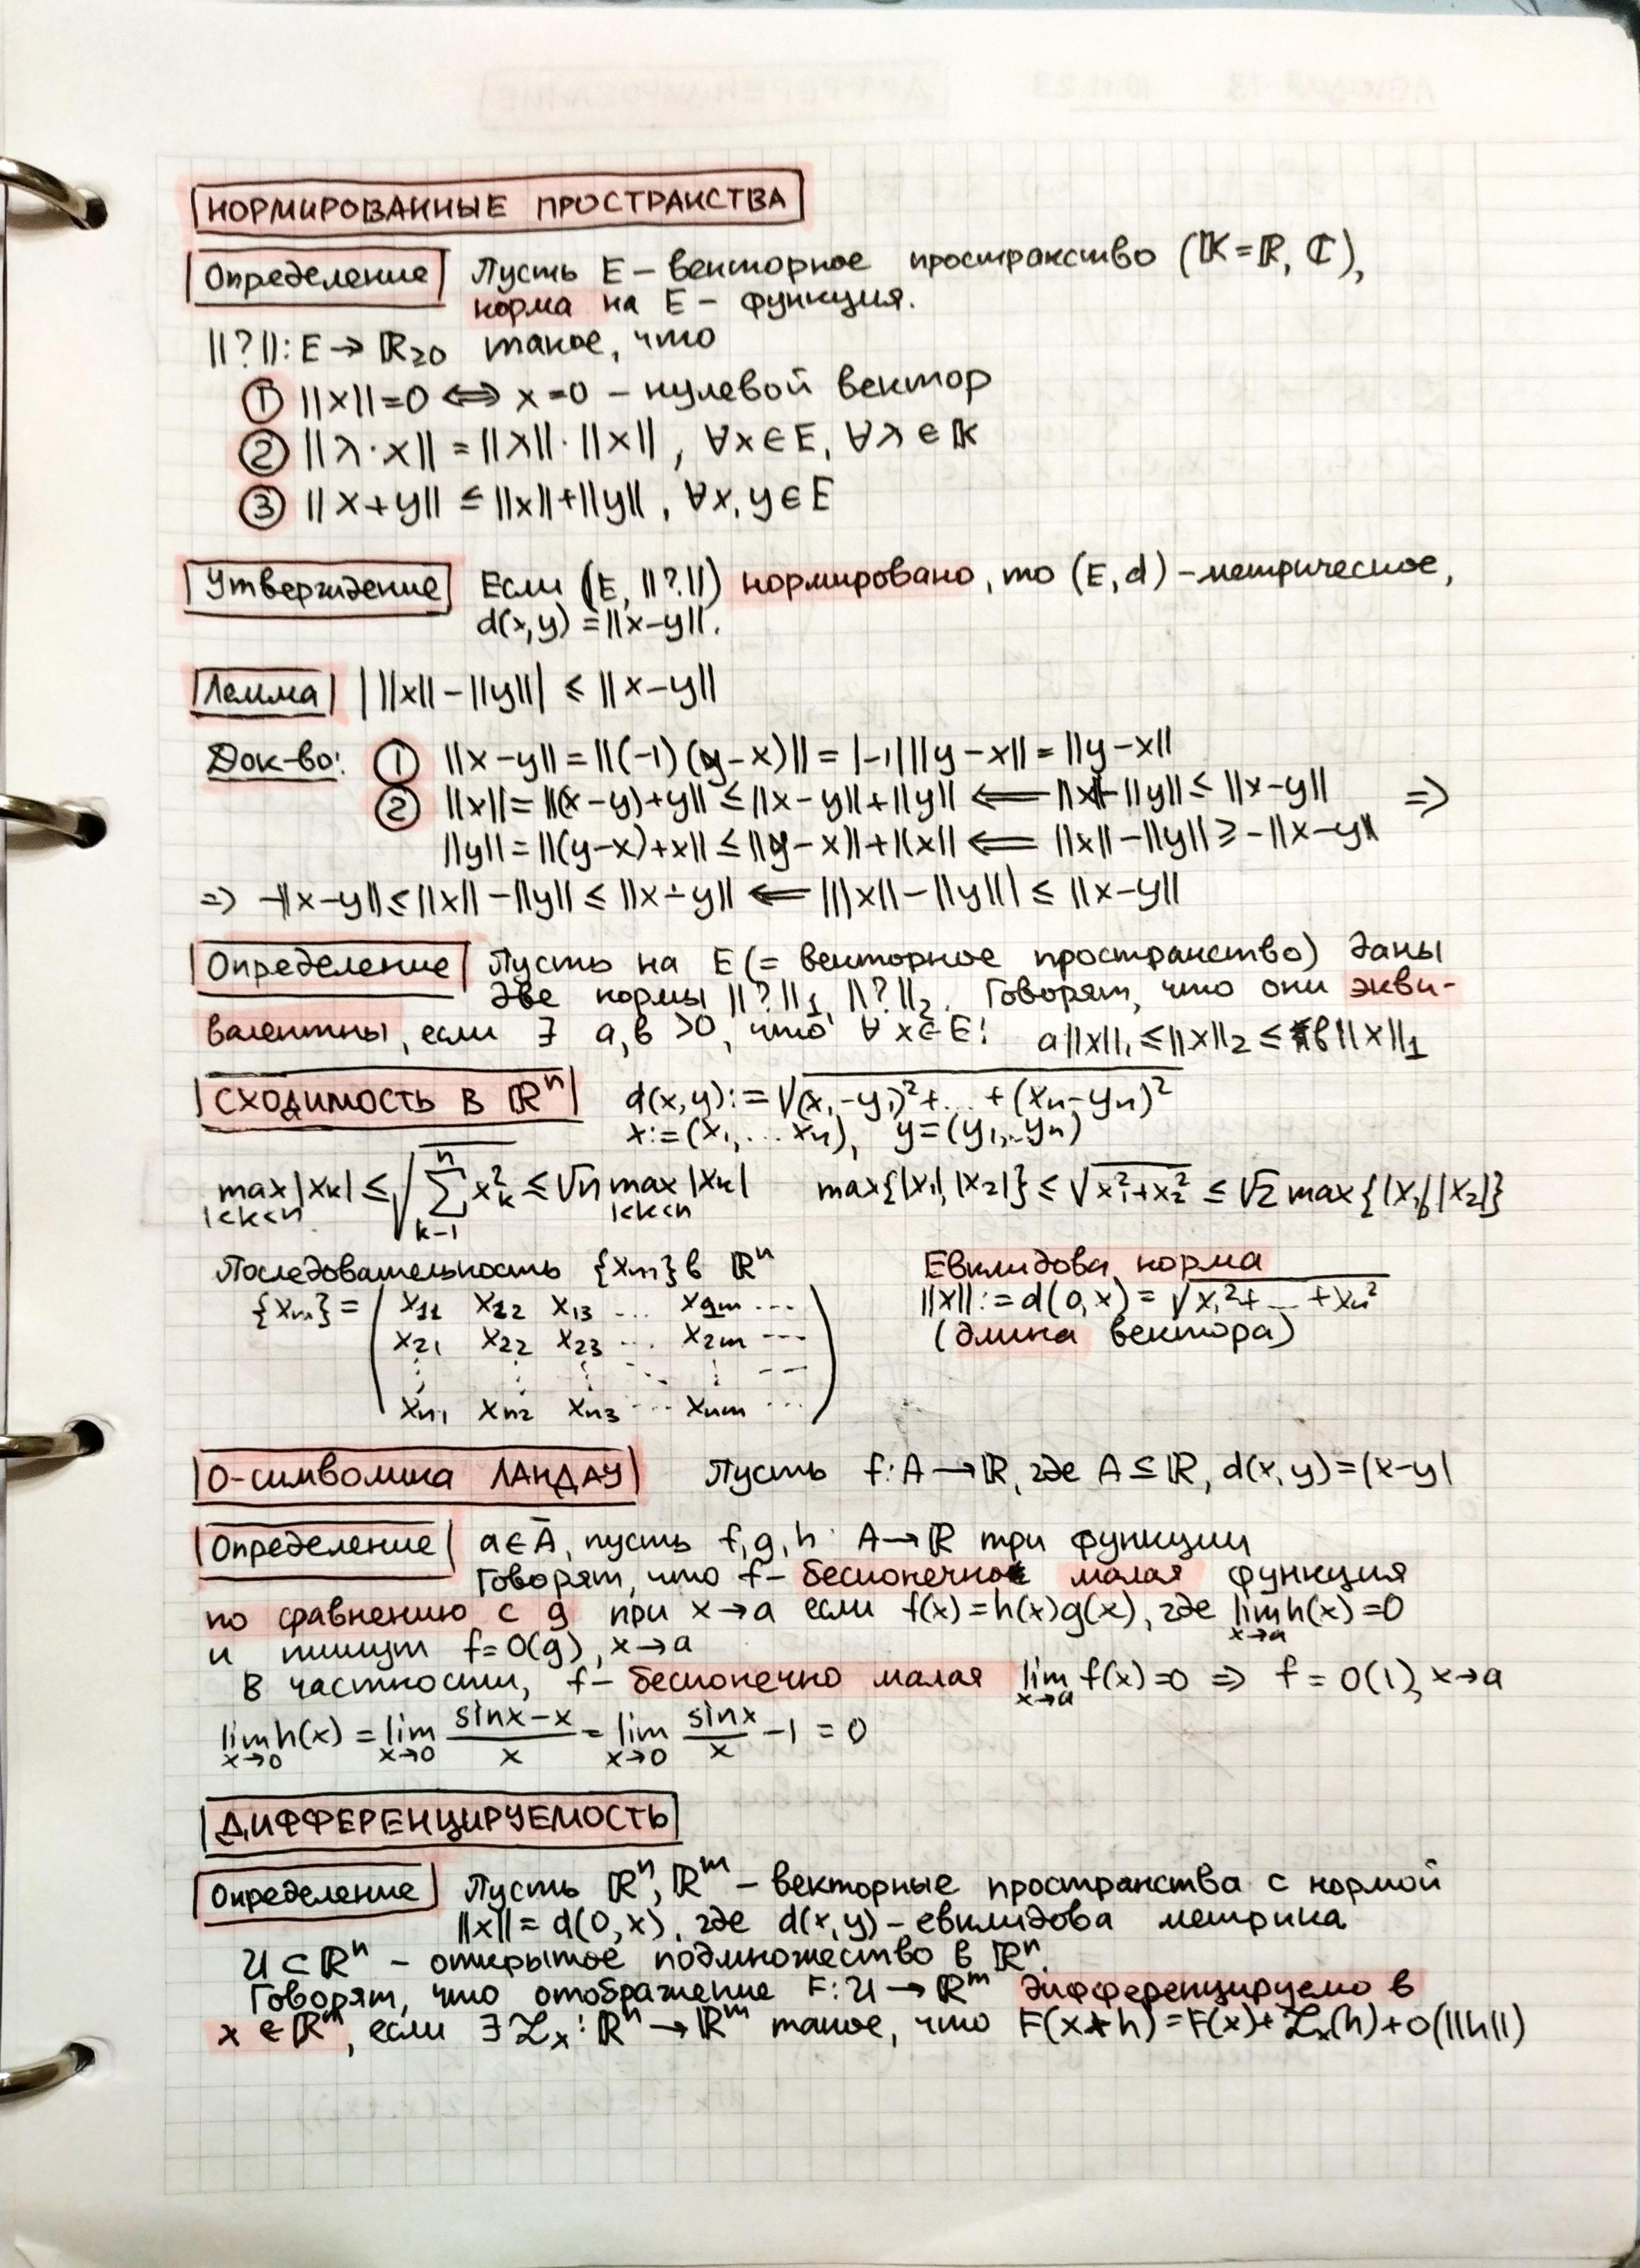 НОРМИРОВАННЫЕ ПРОСТРАНСТВА
Определение Пусть E – векторное пространство (𝕂=ℝ, ℂ),
норма на E – функция.
||?||: E → ℝ≥0 такое, что
① ||x||=0 ⟺ x=0 – нулевой вектор
② ||λ·x|| = ||λ||·||x||, ∀x∈E, ∀λ∈𝕂
③ ||x+y|| ≤ ||x||+||y||, ∀x,y∈E
Утверждение Если (E, ||?||) нормировано, то (E,d) – метрическое,
d(x,y) = ||x-y||.
Лемма | ||x|| - ||y|| | ≤ ||x-y||
Док-во: ① ||x-y|| = ||(-1)(y-x)|| = |-1| ||y-x|| = ||y-x||
② ||x|| = ||(x-y)+y|| ≤ ||x-y||+||y|| ⟸ ||x||-||y|| ≤ ||x-y|| ⇒
||y|| = ||(y-x)+x|| ≤ ||y-x||+||x|| ⟸ ||x||-||y|| ≥ -||x-y||
⇒ -||x-y|| ≤ ||x||-||y|| ≤ ||x-y|| ⟸ | ||x||-||y|| | ≤ ||x-y||
Определение Пусть на E (= векторное пространство) даны
две нормы ||?||₁, ||?||₂. Говорят, что они экви-
валентны, если ∃ a,b >0, что ∀x∈E: a||x||₁ ≤ ||x||₂ ≤ b||x||₁
СХОДИМОСТЬ В ℝⁿ d(x,y) := √((x₁-y₁)²+...+(xₙ-yₙ)²)
x:=(x₁,...xₙ), y=(y₁,..yₙ)
max|xₖ| ≤ √(∑ₖ₋₁ⁿ xₖ²) ≤ √n max|xₖ| max{|x₁|,|x₂|} ≤ √(x₁²+x₂²) ≤ √2 max{|x₁|,|x₂|}
1<k<n 1<k<n
Последовательность {xₘ} в ℝⁿ
{xₘ} = ( x₁₁ x₁₂ x₁₃ ... x₁ₘ ...
x₂₁ x₂₂ x₂₃ ... x₂ₘ ...
⋮ ⋮ ⋮ ⋱ ⋮ ...
xₙ₁ xₙ₂ xₙ₃ ... xₙₘ ... )
Евклидова норма
||x|| := d(0,x) = √(x₁²+...+xₙ²)
(длина вектора)
О-символика ЛАНДАУ Пусть f: A→ℝ, где A⊆ℝ, d(x,y)=|x-y|
Определение a∈Ā, пусть f,g,h: A→ℝ три функции
Говорят, что f – бесконечно малая функция
по сравнению с g при x→a если f(x)=h(x)g(x), где lim h(x)=0
x→a
и пишут f=O(g), x→a
В частности, f – бесконечно малая lim f(x)=0 ⇒ f=O(1), x→a
x→a
lim h(x) = lim (sinx-x)/x = lim sinx/x -1 = 0
x→0 x→0 x→0
ДИФФЕРЕНЦИРУЕМОСТЬ
Определение Пусть ℝⁿ, ℝᵐ – векторные пространства с нормой
||x|| = d(0,x), где d(x,y) – евклидова метрика
U⊂ℝⁿ – открытое подмножество в ℝⁿ.
Говорят, что отображение F: U→ℝᵐ дифференцируемо в
x∈ℝⁿ, если ∃ℒₓ: ℝⁿ→ℝᵐ такое, что F(x+h)=F(x)+ℒₓ(h)+o(||h||)